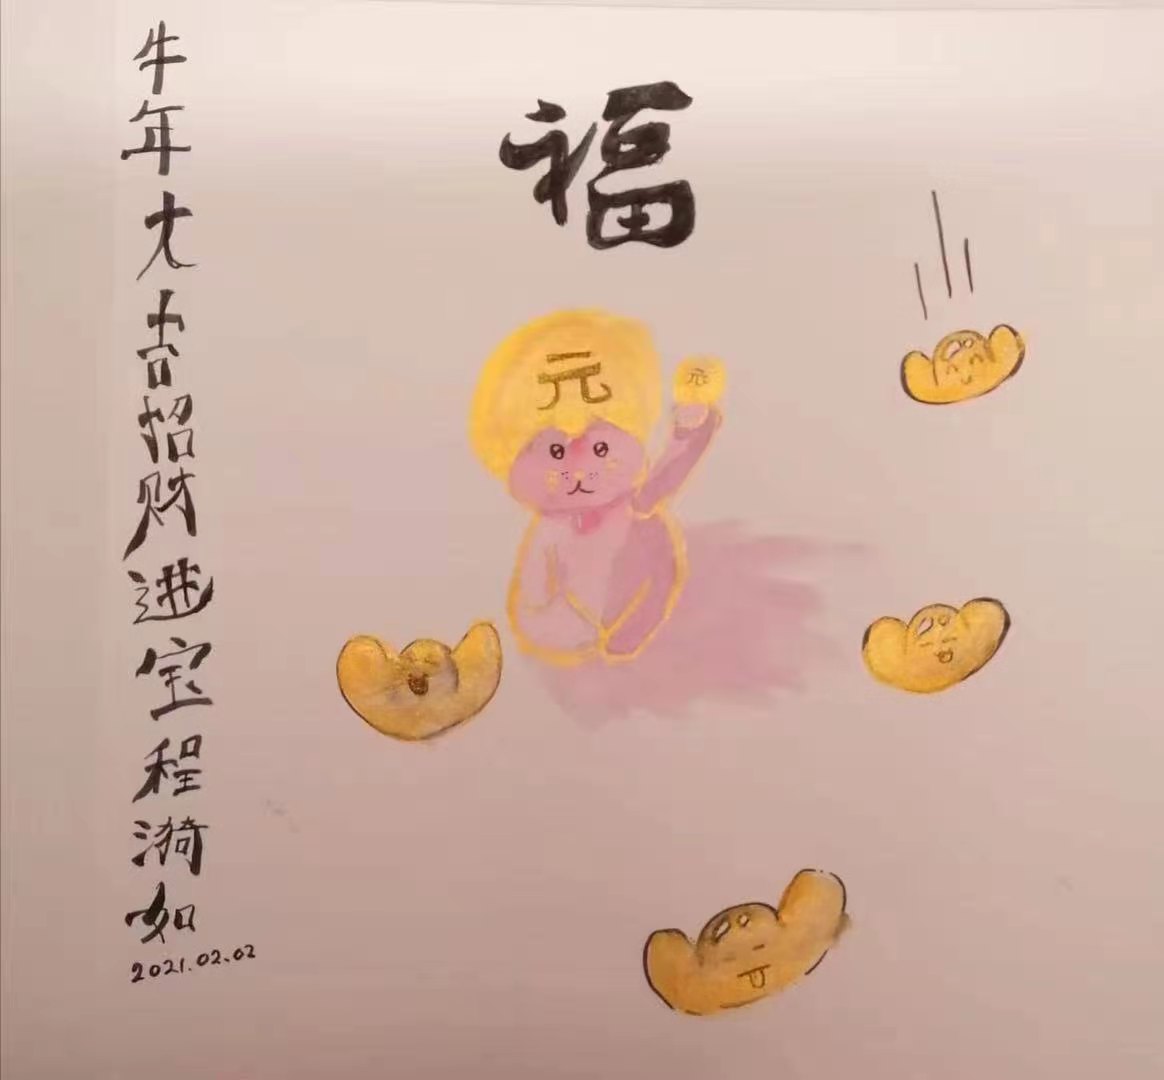 牛年大吉招财进宝程漪如
2021.02.02
福
元
元